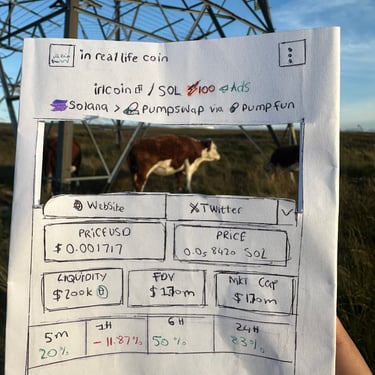 in real life coin
irlcoin / SOL 100 Ads
Solana > PumpSwap via Pumpfun
Website
X Twitter
PRICE USD
$0.001717
PRICE
0.0₅8420 SOL
LIQUIDITY
$200k
FDV
$170m
MKT Cap
$170m
5m
20%
1H
-11.87%
6H
50%
24H
83%